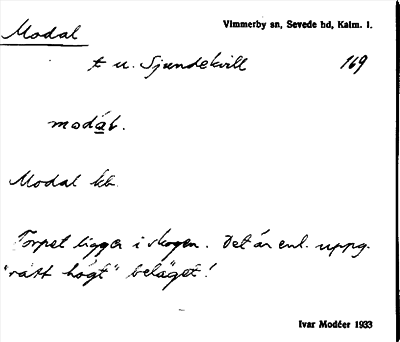 Modal
Vimmerby sn, Sevede hd, Kalm. l.
t u. Sjundekvill 169
modáł.
Modal kb.
Torpet ligger i skogen. Det är enl. uppg.
"rätt högt" beläget!
Ivar Modéer 1933